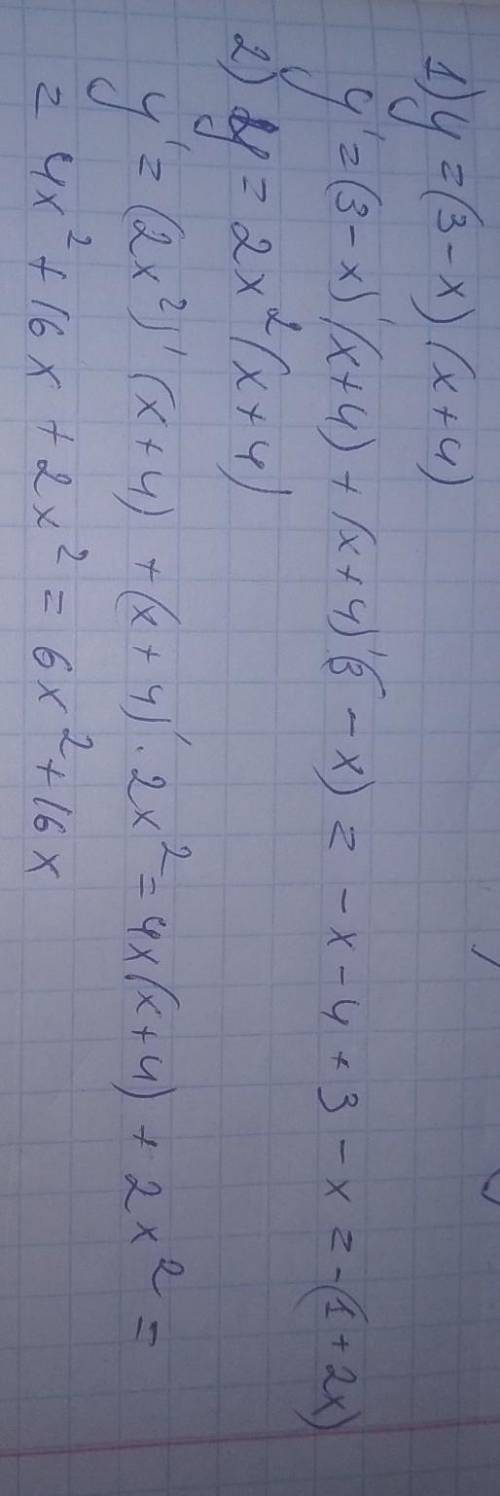 1) y = (3 - x)(x + 4)
y' = (3 - x)'(x + 4) + (x + 4)'(3 - x) = - x - 4 + 3 - x = - (1 + 2x)
2) y = 2x²(x + 4)
y' = (2x²)'(x + 4) + (x + 4)' · 2x² = 4x(x + 4) + 2x² =
= 4x² + 16x + 2x² = 6x² + 16x